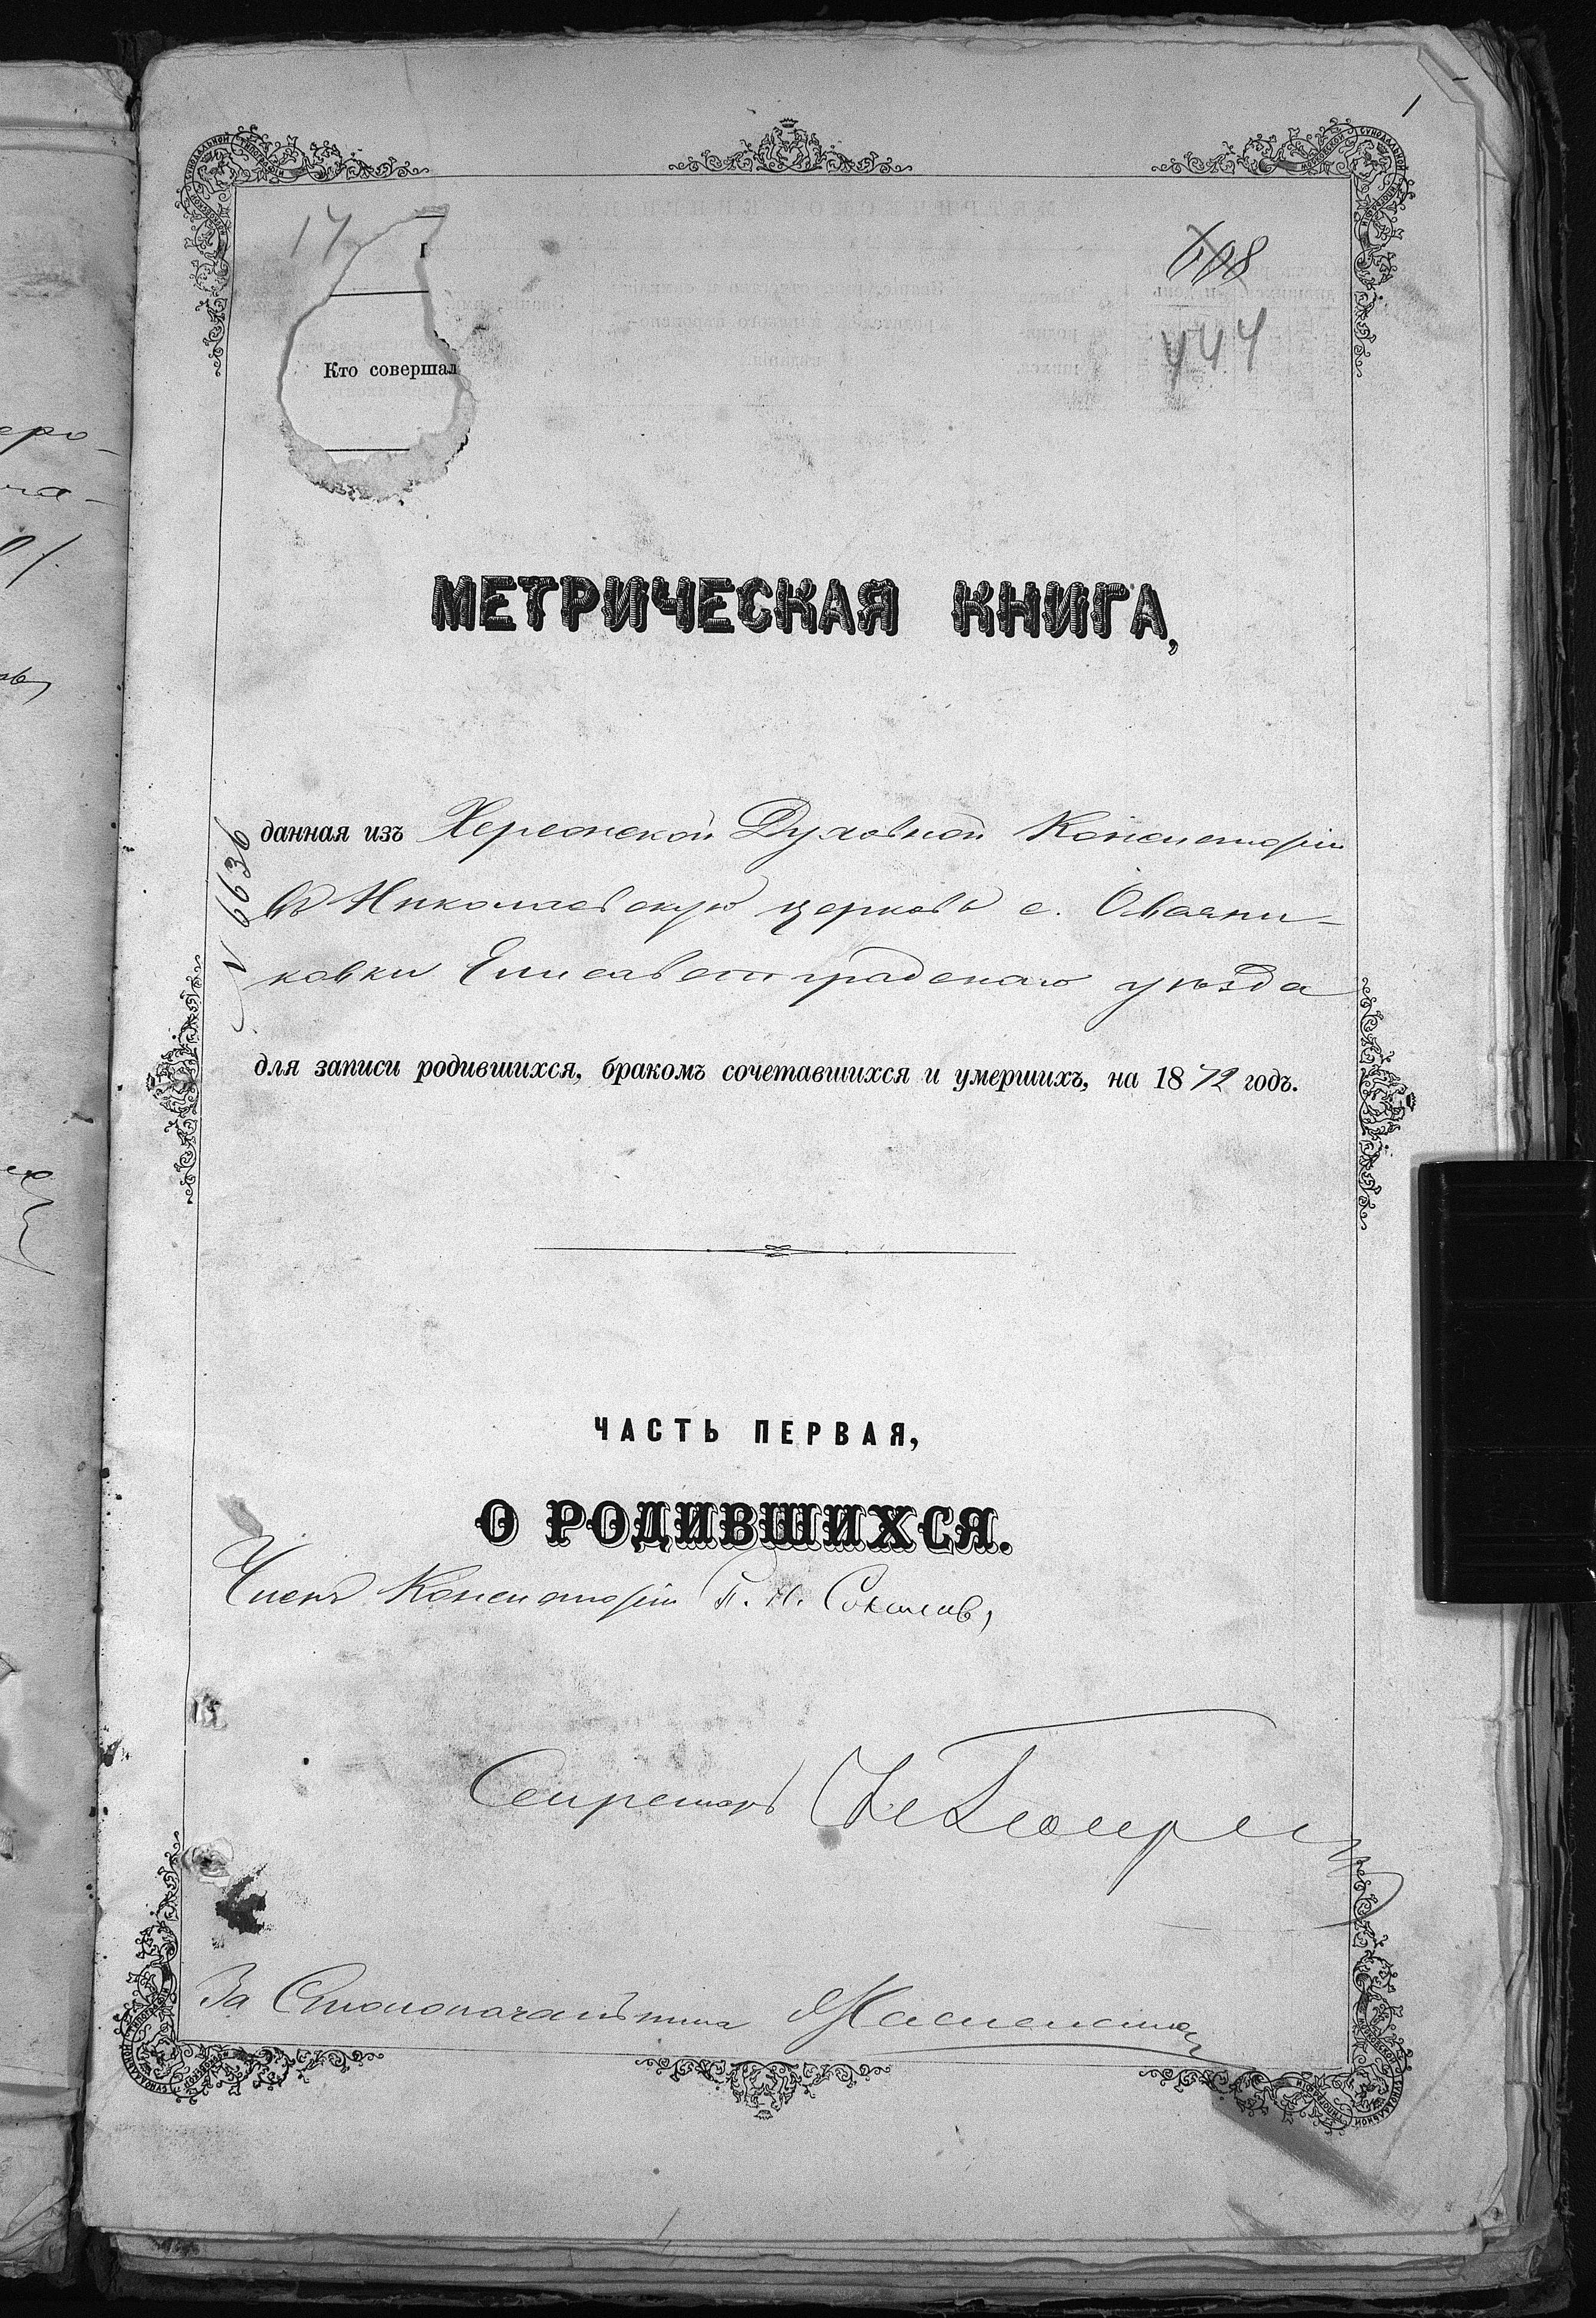 1
17
608
444
Кто совершал
МЕТРИЧЕСКАЯ КНИГА,
N 6636
данная изъ Херсонской Духовной Консисторіи
въ Николаевскую церковь с. Овсяни-
ковки Елисаветградскаго уѣзда
для записи родившихся, бракомъ сочетавшихся и умершихъ, на 1872 годъ.
ЧАСТЬ ПЕРВАЯ,
О РОДИВШИХСЯ.
Членъ Консисторіи П. Н. Соколовъ,
Секретарь
За Столоначальника